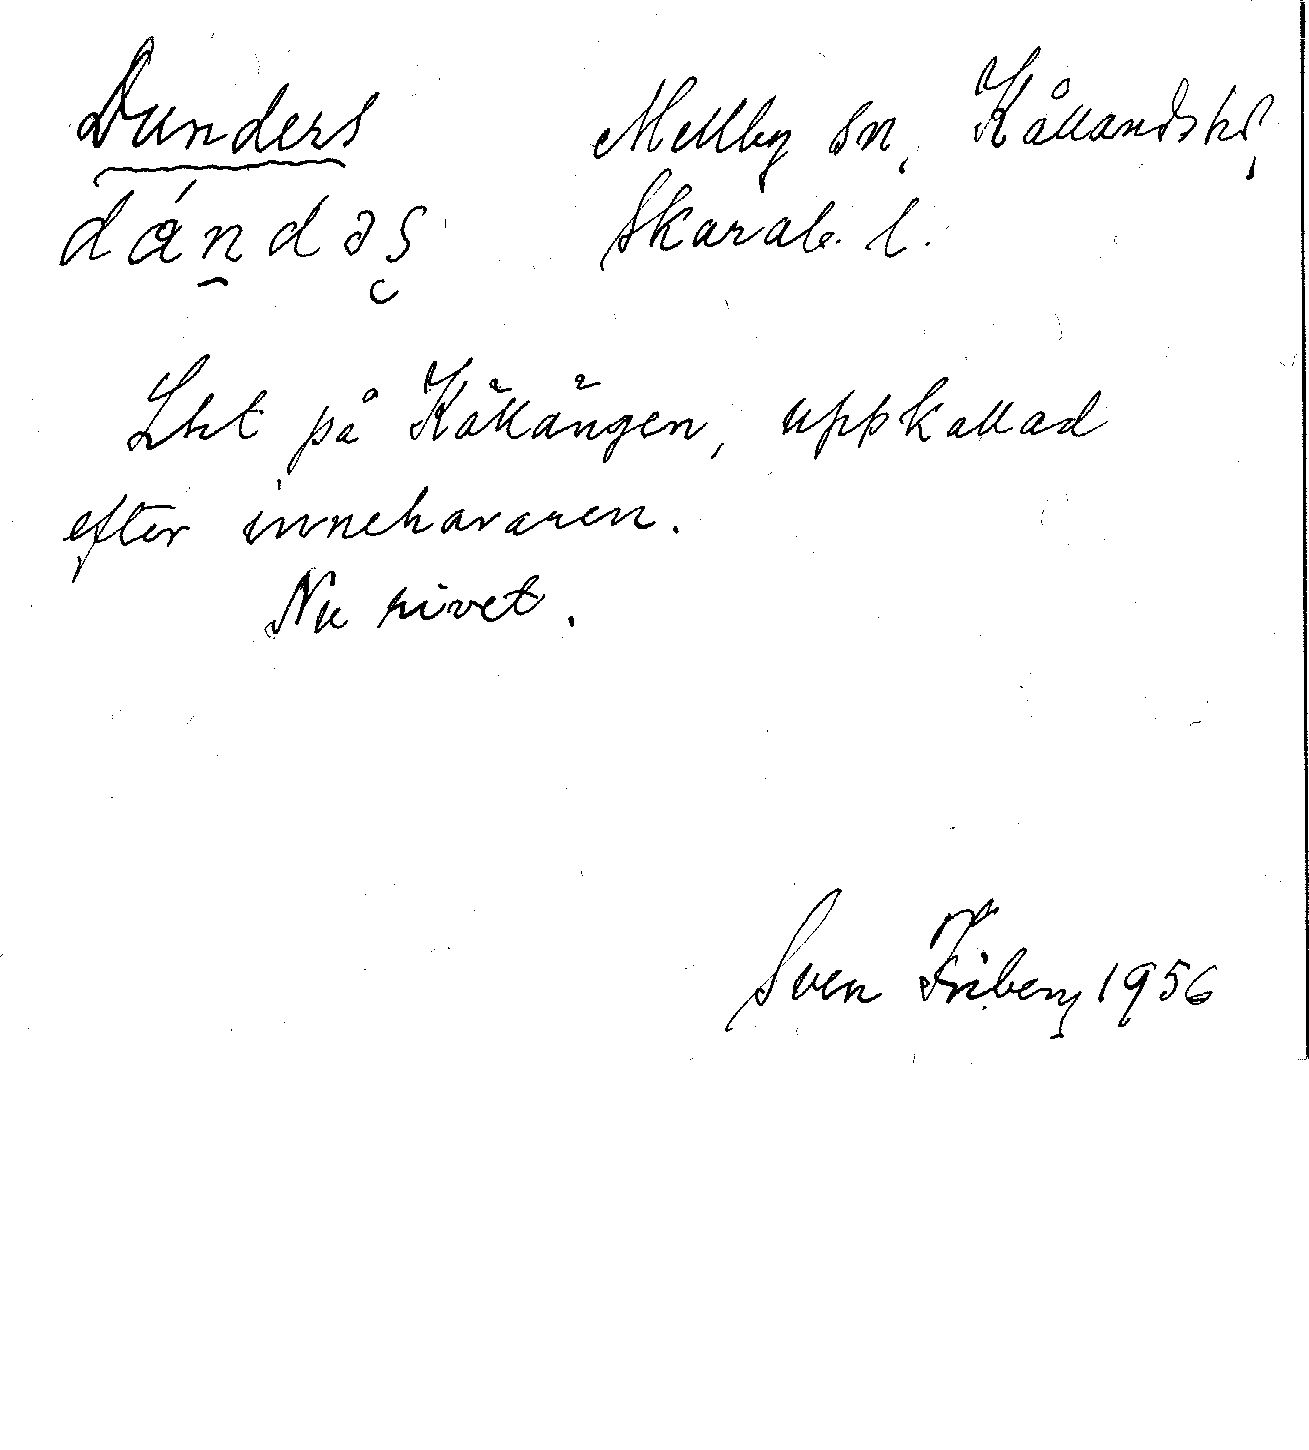 Dunders Mellby sn, Kållands hd,
dándəs Skarab. l.
Lht på Kållängen, uppkallad
efter innehavaren.
Nu rivet.
Sven Friberg 1956